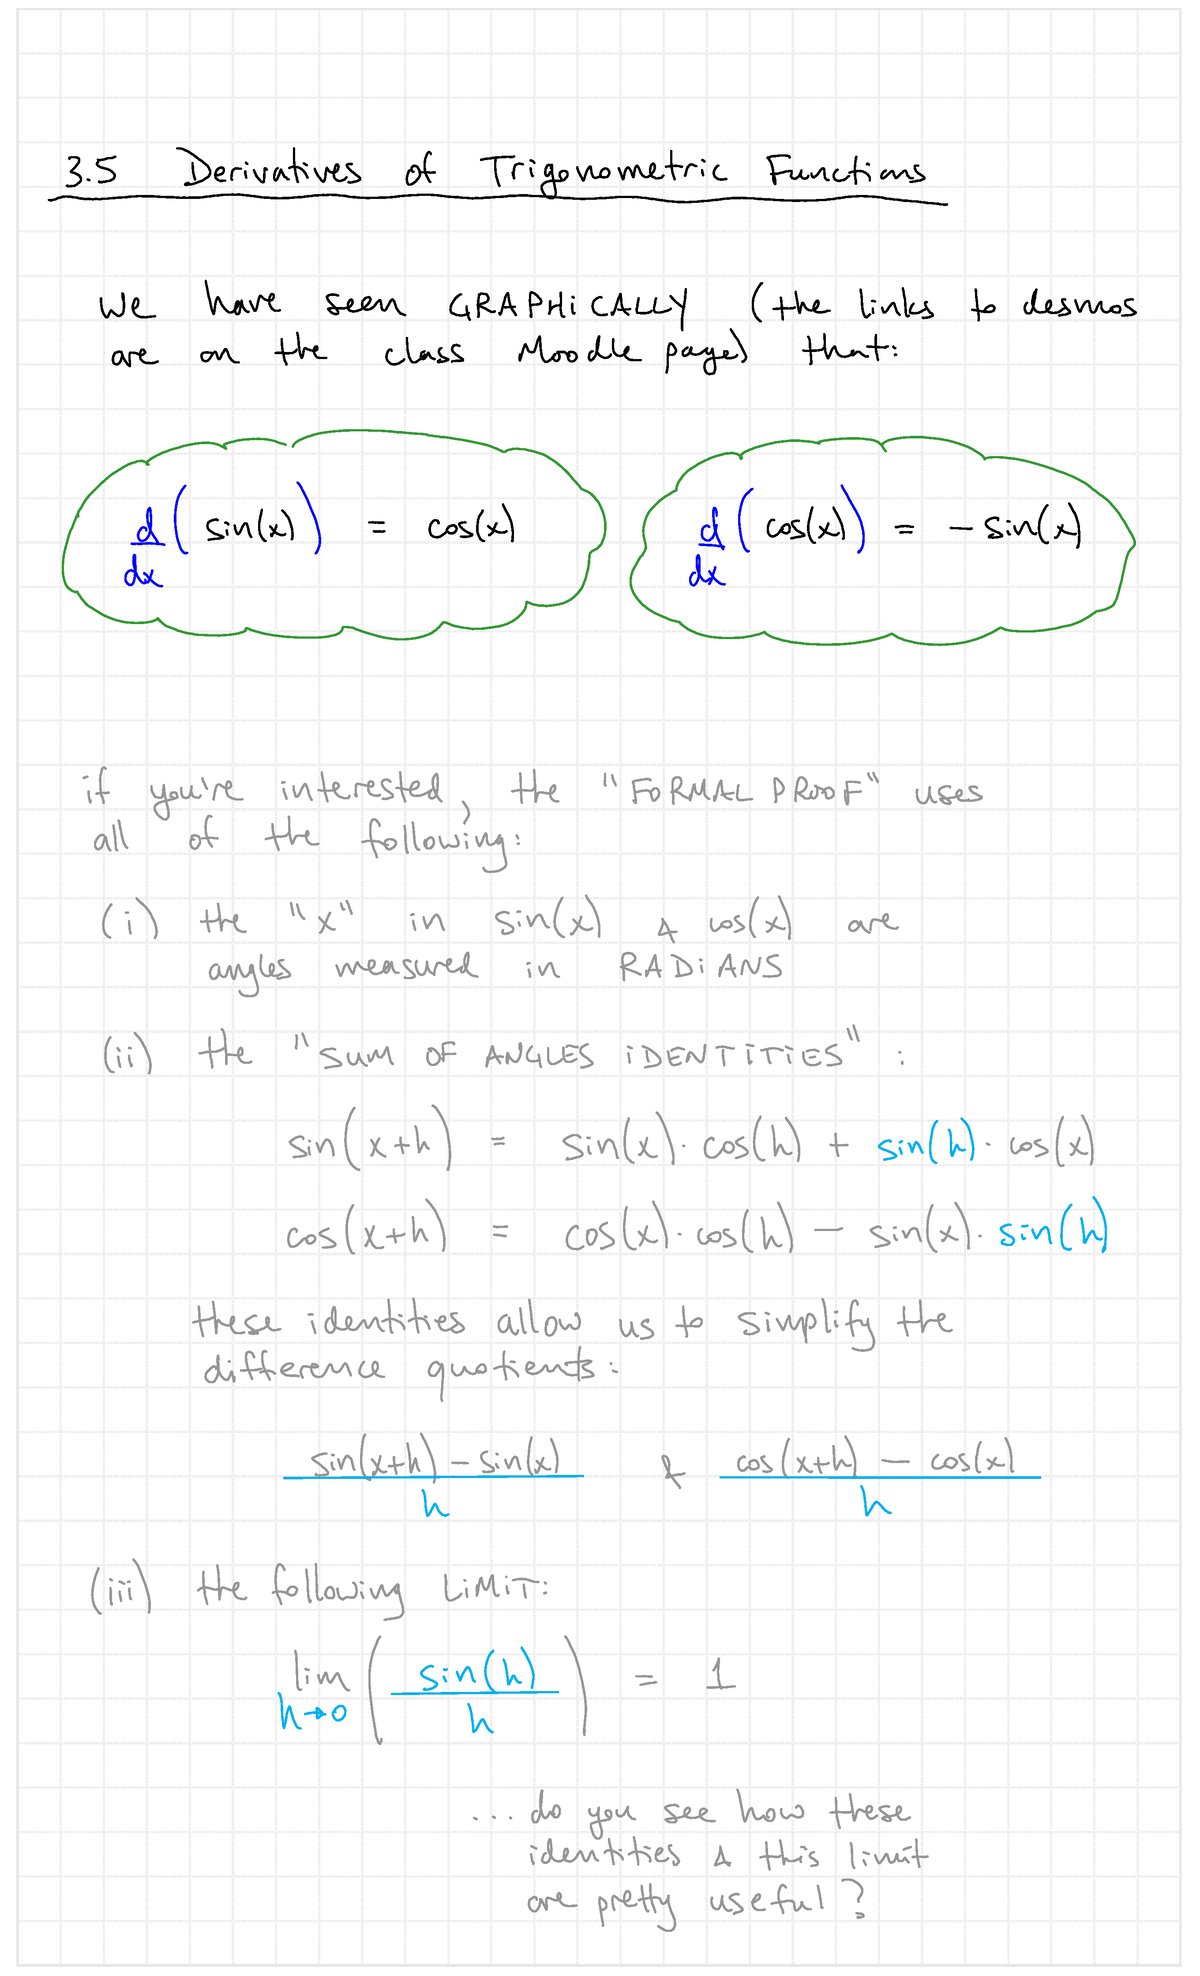 3.5 Derivatives of Trigonometric Functions
We have seen GRAPHiCALLY (the links to desmos
are on the class Moodle page) that:
d/dx (sin(x)) = cos(x)
d/dx (cos(x)) = -sin(x)
if you're interested, the "FORMAL PROOF" uses
all of the following:
(i) the "x" in sin(x) & cos(x) are
angles measured in RADiANS
(ii) the "SUM OF ANGLES iDENTiTiES":
sin(x+h) = sin(x)·cos(h) + sin(h)·cos(x)
cos(x+h) = cos(x)·cos(h) − sin(x)·sin(h)
these identities allow us to simplify the
difference quotients:
sin(x+h) − sin(x) / h & cos(x+h) − cos(x) / h
(iii) the following LiMiT:
lim h→0 (sin(h) / h) = 1
...do you see how these
identities & this limit
are pretty useful?